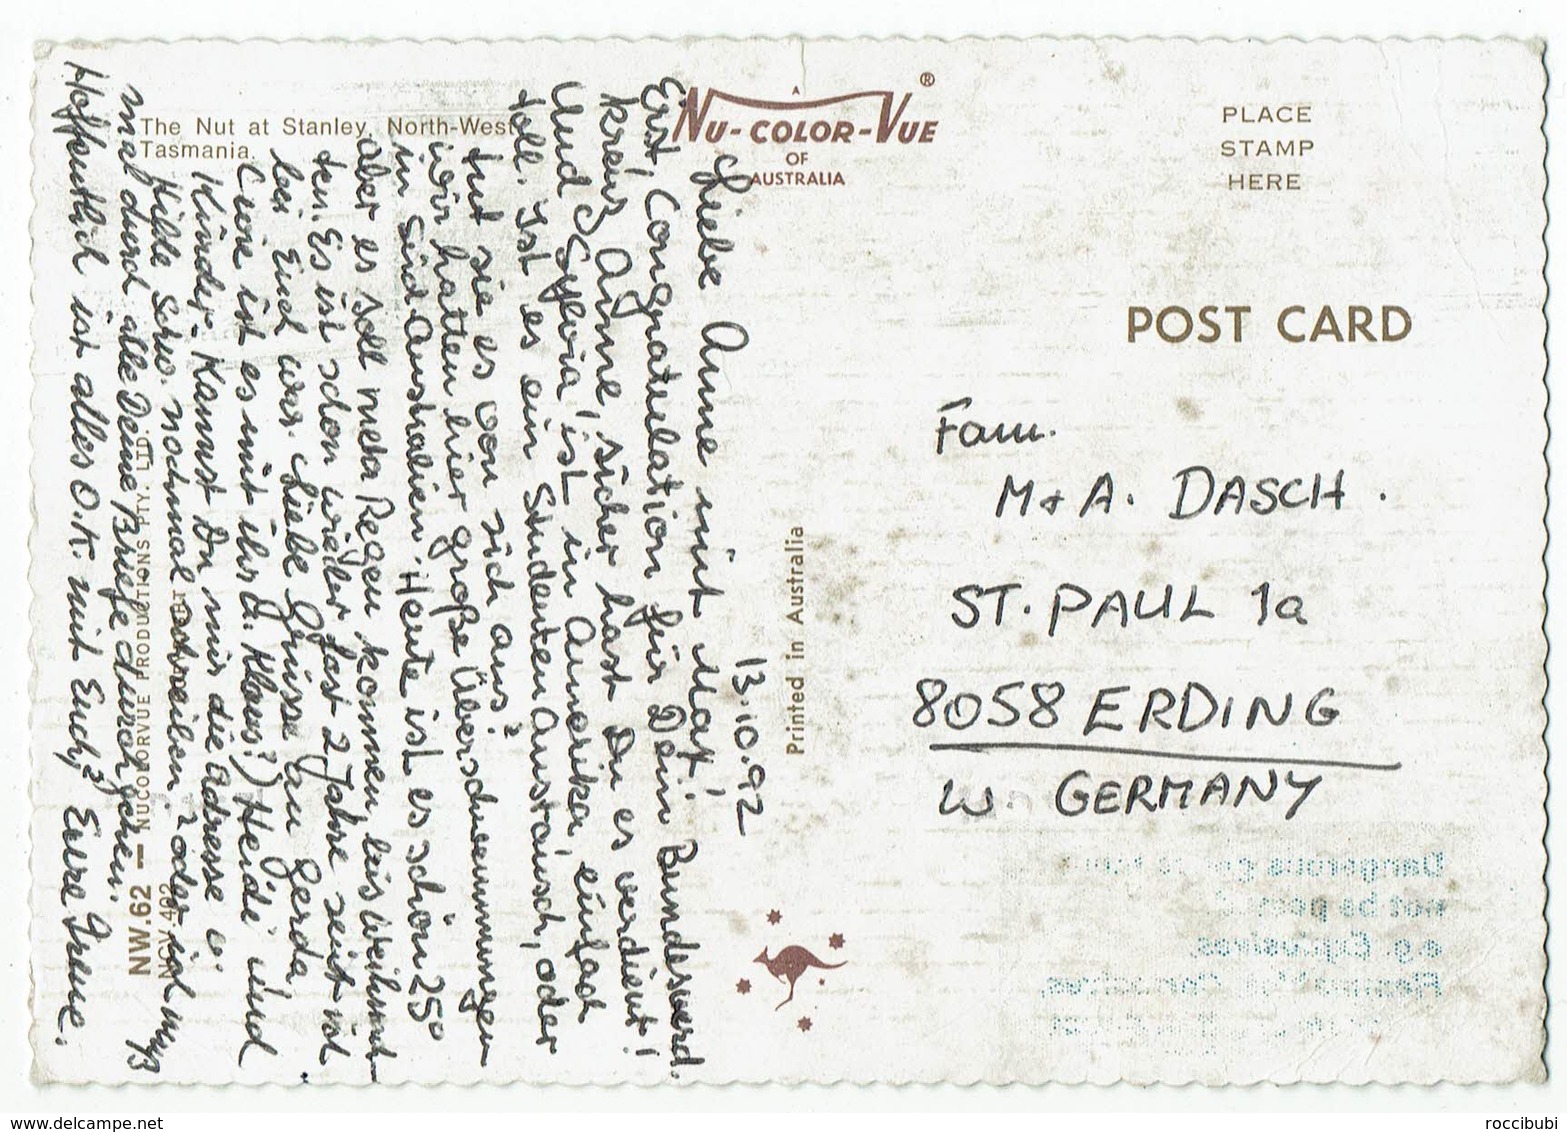 The Nut at Stanley, North-West
Tasmania.
A
NU-COLOR-VUE ®
OF
AUSTRALIA
PLACE
STAMP
HERE
POST CARD
Fam.
M + A. DASCH.
ST. PAUL 1a
8058 ERDING
W. GERMANY
Printed in Australia
NW.62 — NUCOLORVUE PRODUCTIONS PTY. LTD.
NCV 402
13.10.92
Liebe Anne mit Mat!
Erst, Congratulation für Dein Bundesverd.
kreuz Anne, sicher hast Du es verdient!
Und Sylvia ist in Amerika, einfach
toll. Ist es ein Studenten Austausch, oder
tut sie es von sich aus?
Wir hatten hier große Überschwemmungen
in Süd Australien. Heute ist es schön 25°
aber es soll mehr Regen kommen, bis Weihnach-
ten. Es ist schon wieder fast 2 Jahre seit ich
bei Euch war. Liebe Grüsse an Gerda,
(wie ist es mit ihr u. Klaus?) Heide und
Kinder. Kannst Du mir die Adresse v.
Hilde Schw. nochmal schreiben, oder ich muß
mal durch alle Deine Briefe durchgehen.
Hoffentlich ist alles O.K. mit Euch, Eure Irene.
Dangerous
not be
e.g. Explosives
roccibubi